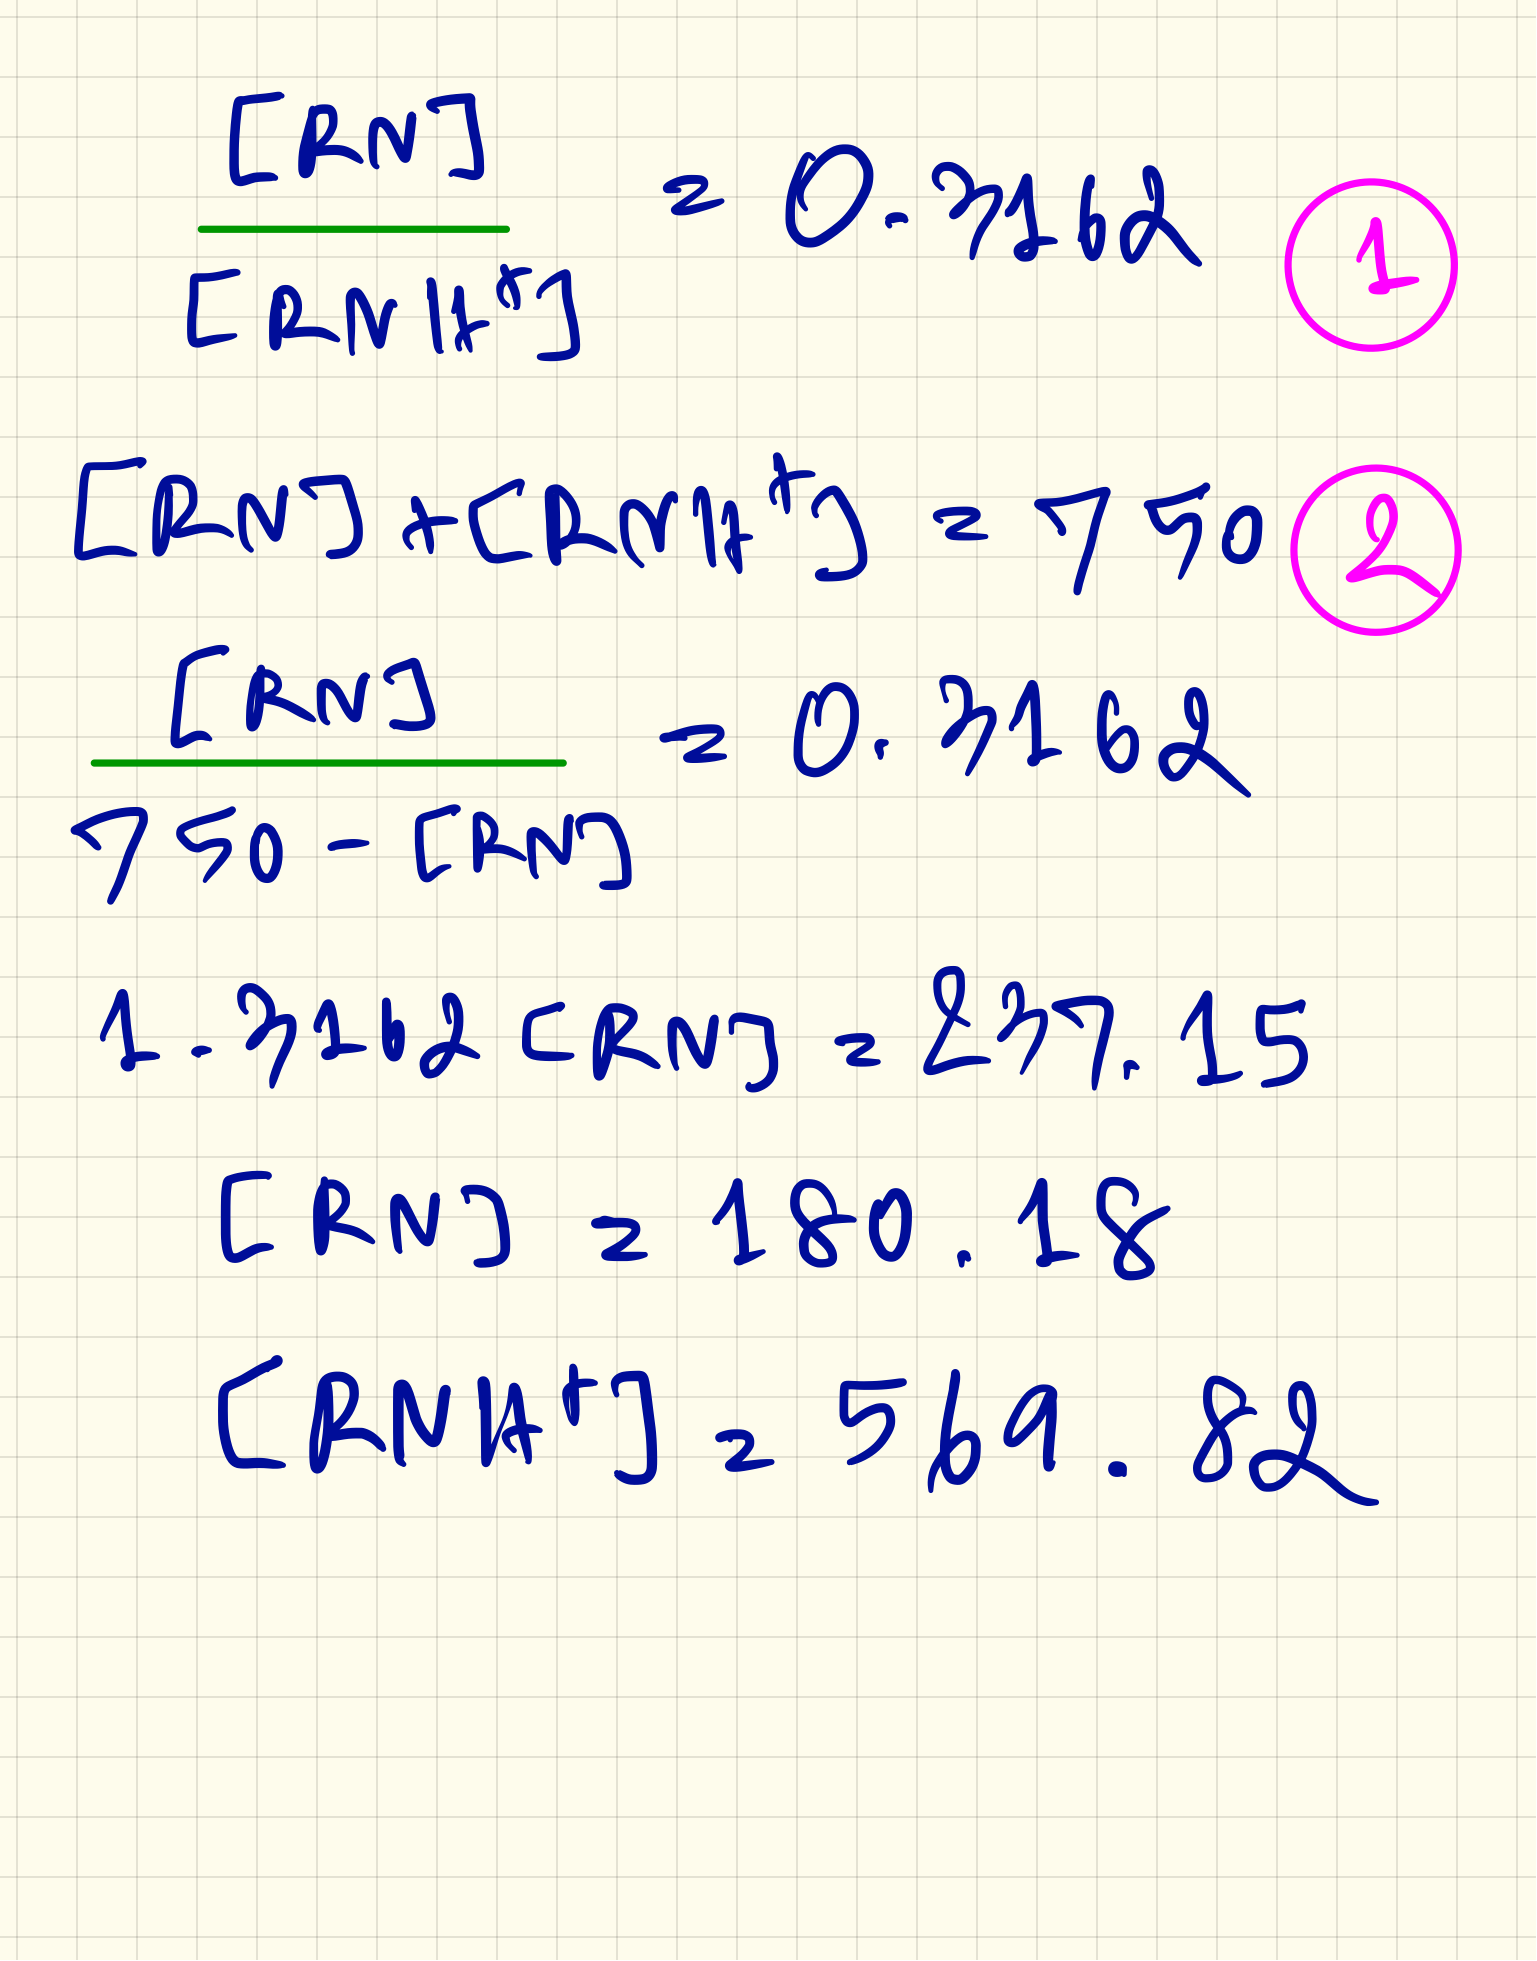 [RN]
= 0.3162 1
[RNH⁺]
[RN] + [RNH⁺] = 750 2
[RN]
= 0.3162
750 - [RN]
1.3162 [RN] = 237.15
[RN] = 180.18
[RNH⁺] = 569.82